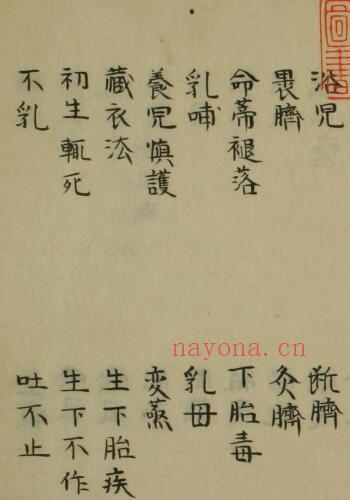 浴児 断臍
畏臍 灸臍
命蒂褪落 下胎毒
乳哺 乳母
養児慎護 変蒸
蔵衣法 生下胎疾
初生輒死 生下不作
不乳 吐不止
nayona.cn